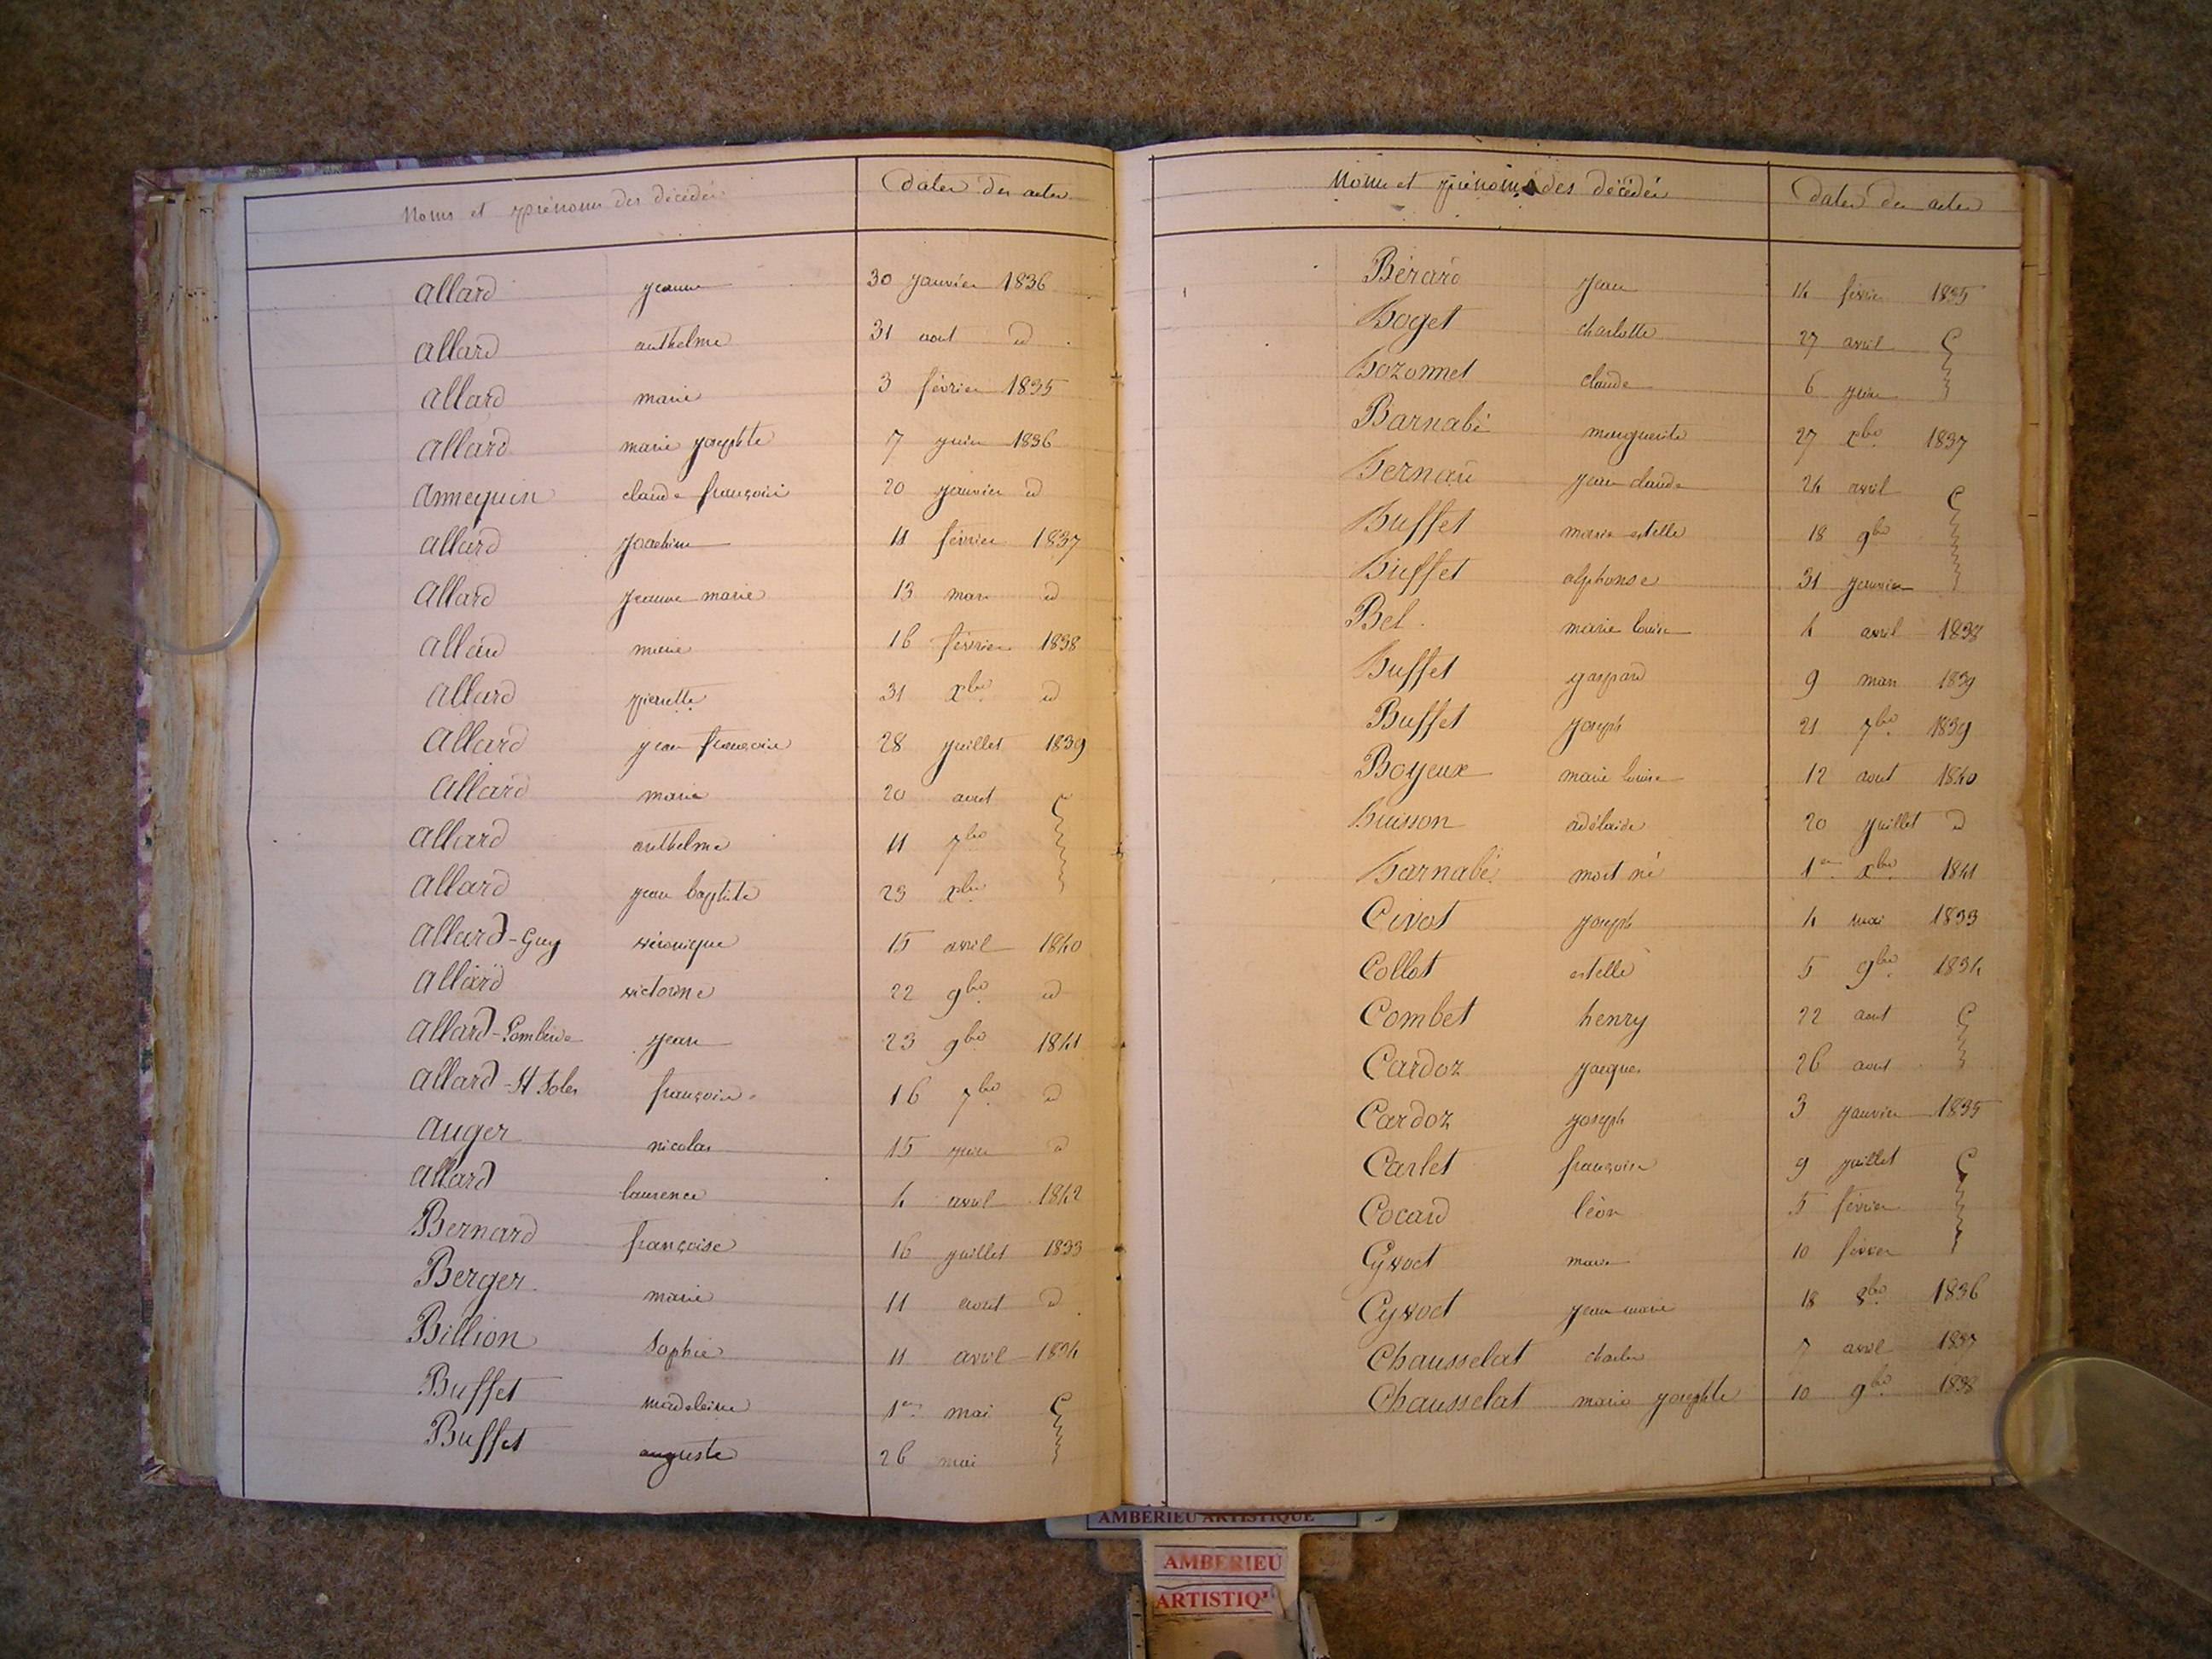 Noms et prénoms des décédés dates des actes
allard jeanne 30 janvier 1836
allard anthelme 31 aout id
allard marie 3 février 1835
allard marie josephte 7 juin 1836
annequin claude françois 20 janvier id
allard joachim 11 février 1837
allard jeanne marie 13 mars id
allard marie 16 février 1838
allard pierrette 31 xbre id
allard jean françois 28 juillet 1839
allard marie 20 aout
allard anthelme 11 7bre
allard jean baptiste 23 xbre
allard-Guy véronique 15 avril 1840
allard victorine 22 9bre id
allard- jean 23 9bre 1841
allard-St françois 16 7bre id
auger nicolas 15 juin id
allard laurence 4 avril 1842
Bernard françoise 16 juillet 1833
Berger marie 11 aout id
Billion Sophie 11 avril 1834
Buffet madeleine 1er mai
Buffet auguste 26 mai
Noms et prénoms des décédés dates des actes
Bérard jean 14 février 1835
Boget charlotte 27 avril
Bozonnet claude 6 juin
Barnabé marguerite 27 xbre 1837
Bernard jean claude 24 avril
Buffet marie estelle 18 9bre
Buffet alphonse 31 janvier
Bel marie louise 4 avril 1838
Buffet gaspard 9 mars 1839
Buffet joseph 21 7bre 1839
Boyeux marie louise 12 aout 1840
Buisson adélaide 20 juillet id
Barnabé mort né 1er xbre 1841
Civot joseph 4 mai 1833
Collot estelle 5 9bre 1834
Combet henry 22 aout
Cardoz jacques 26 aout
Cardoz joseph 3 janvier 1835
Carlet françois 9 juillet
Cocard léon 5 février
Cyvoct marie 10 février
Cyvoct jean marie 18 8bre 1836
Chausselat charles 7 avril 1837
Chausselat marie josephte 10 9bre 1838
AMBÉRIEU ARTISTIQUE
AMBERIEU
ARTISTIQ